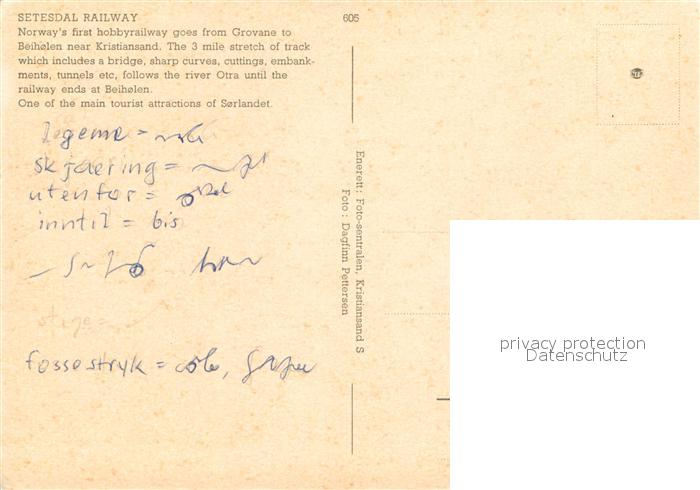 SETESDAL RAILWAY
Norway's first hobbyrailway goes from Grovane to
Beihølen near Kristiansand. The 3 mile stretch of track
which includes a bridge, sharp curves, cuttings, embank-
ments, tunnels etc, follows the river Otra until the
railway ends at Beihølen.
One of the main tourist attractions of Sørlandet.
legeme =
skjaering =
utenfor =
inntil = bis
fossestryk =
605
Enerett: Foto-sentralen, Kristiansand S
Foto: Dagfinn Pettersen
privacy protection
Datenschutz